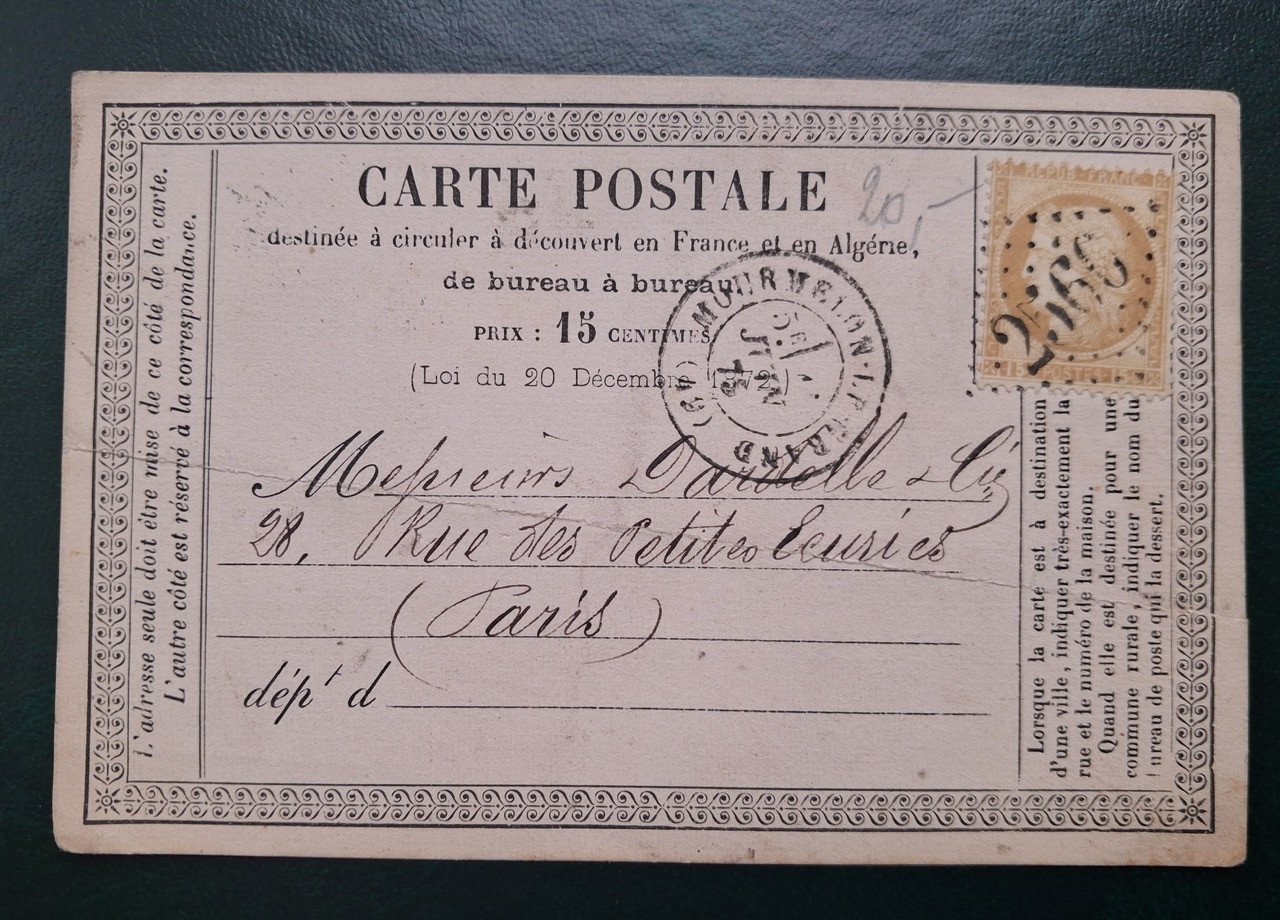 CARTE POSTALE
20,-
destinée à circuler à découvert en France et en Algérie,
de bureau à bureau
PRIX : 15 CENTIMES
(Loi du 20 Décembre 1872)
REPUB FRANC
2566
15 POSTES 15
MOURMELON-LE-GRAND
5E
JUIN
75
Messieurs Dardelle & Cie
28, Rue des Petites Ecuries
(Paris)
dépt d
L'adresse seule doit être mise de ce côté de la carte.
L'autre côté est réservé à la correspondance.
Lorsque la carte est à destination
d'une ville, indiquer très-exactement la
rue et le numéro de la maison.
Quand elle est destinée pour une
commune rurale, indiquer le nom du
bureau de poste qui la dessert.